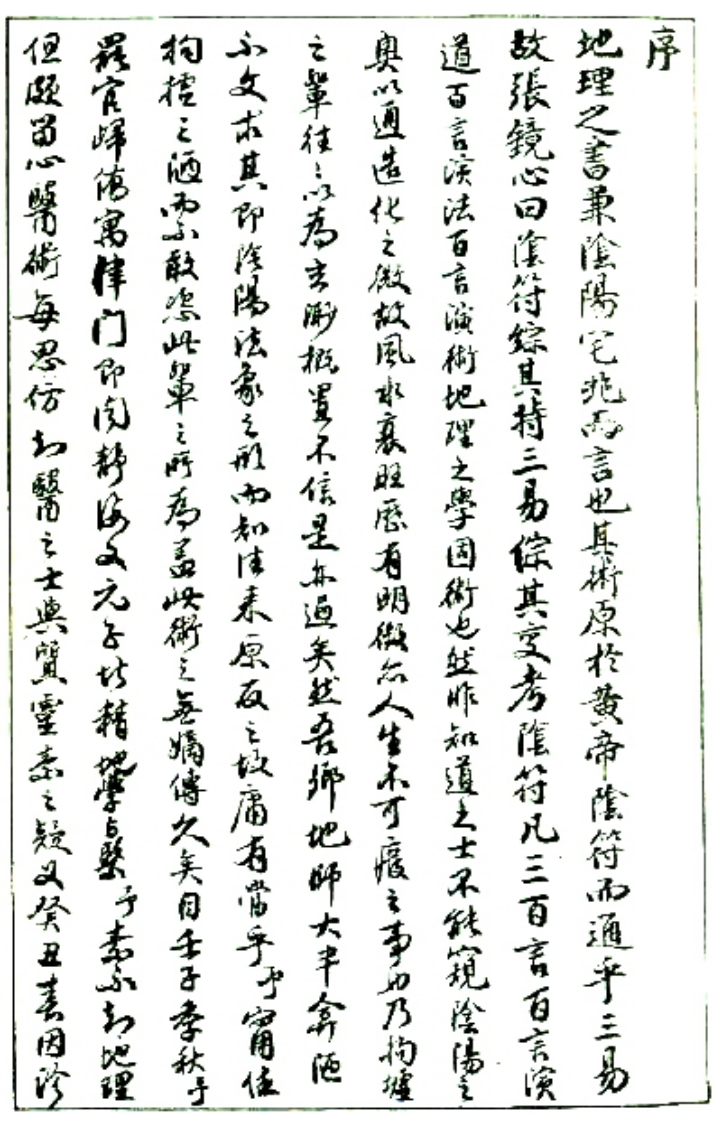 序
地理之書兼陰陽宅兆而言也其術原於黃帝陰符而通乎三易
故張鏡心曰陰符綜其特三易綜其变考陰符凡三百言百言演
道百言演法百言演術地理之學固術也然非知道之士不能窺陰陽之
奧以通造化之微故風水衰旺歷有明徵亦人生不可廢之事也乃拘墟
之輩往之以為玄渺概置不信是亦過矣然吾鄉地師大半弇陋
不文求其即陰陽法象之形而知往来原反之故庸有當乎予甯任
拘墟之陋而不敢恣此輩之所為蓋此術之無嫡傳久矣自壬子季秋予
罷官歸僑寓津门即闻靜海文元子 精地學 予素不知地理
但頗留心醫術每思仿知醫之士與質靈素之疑义癸丑春因診